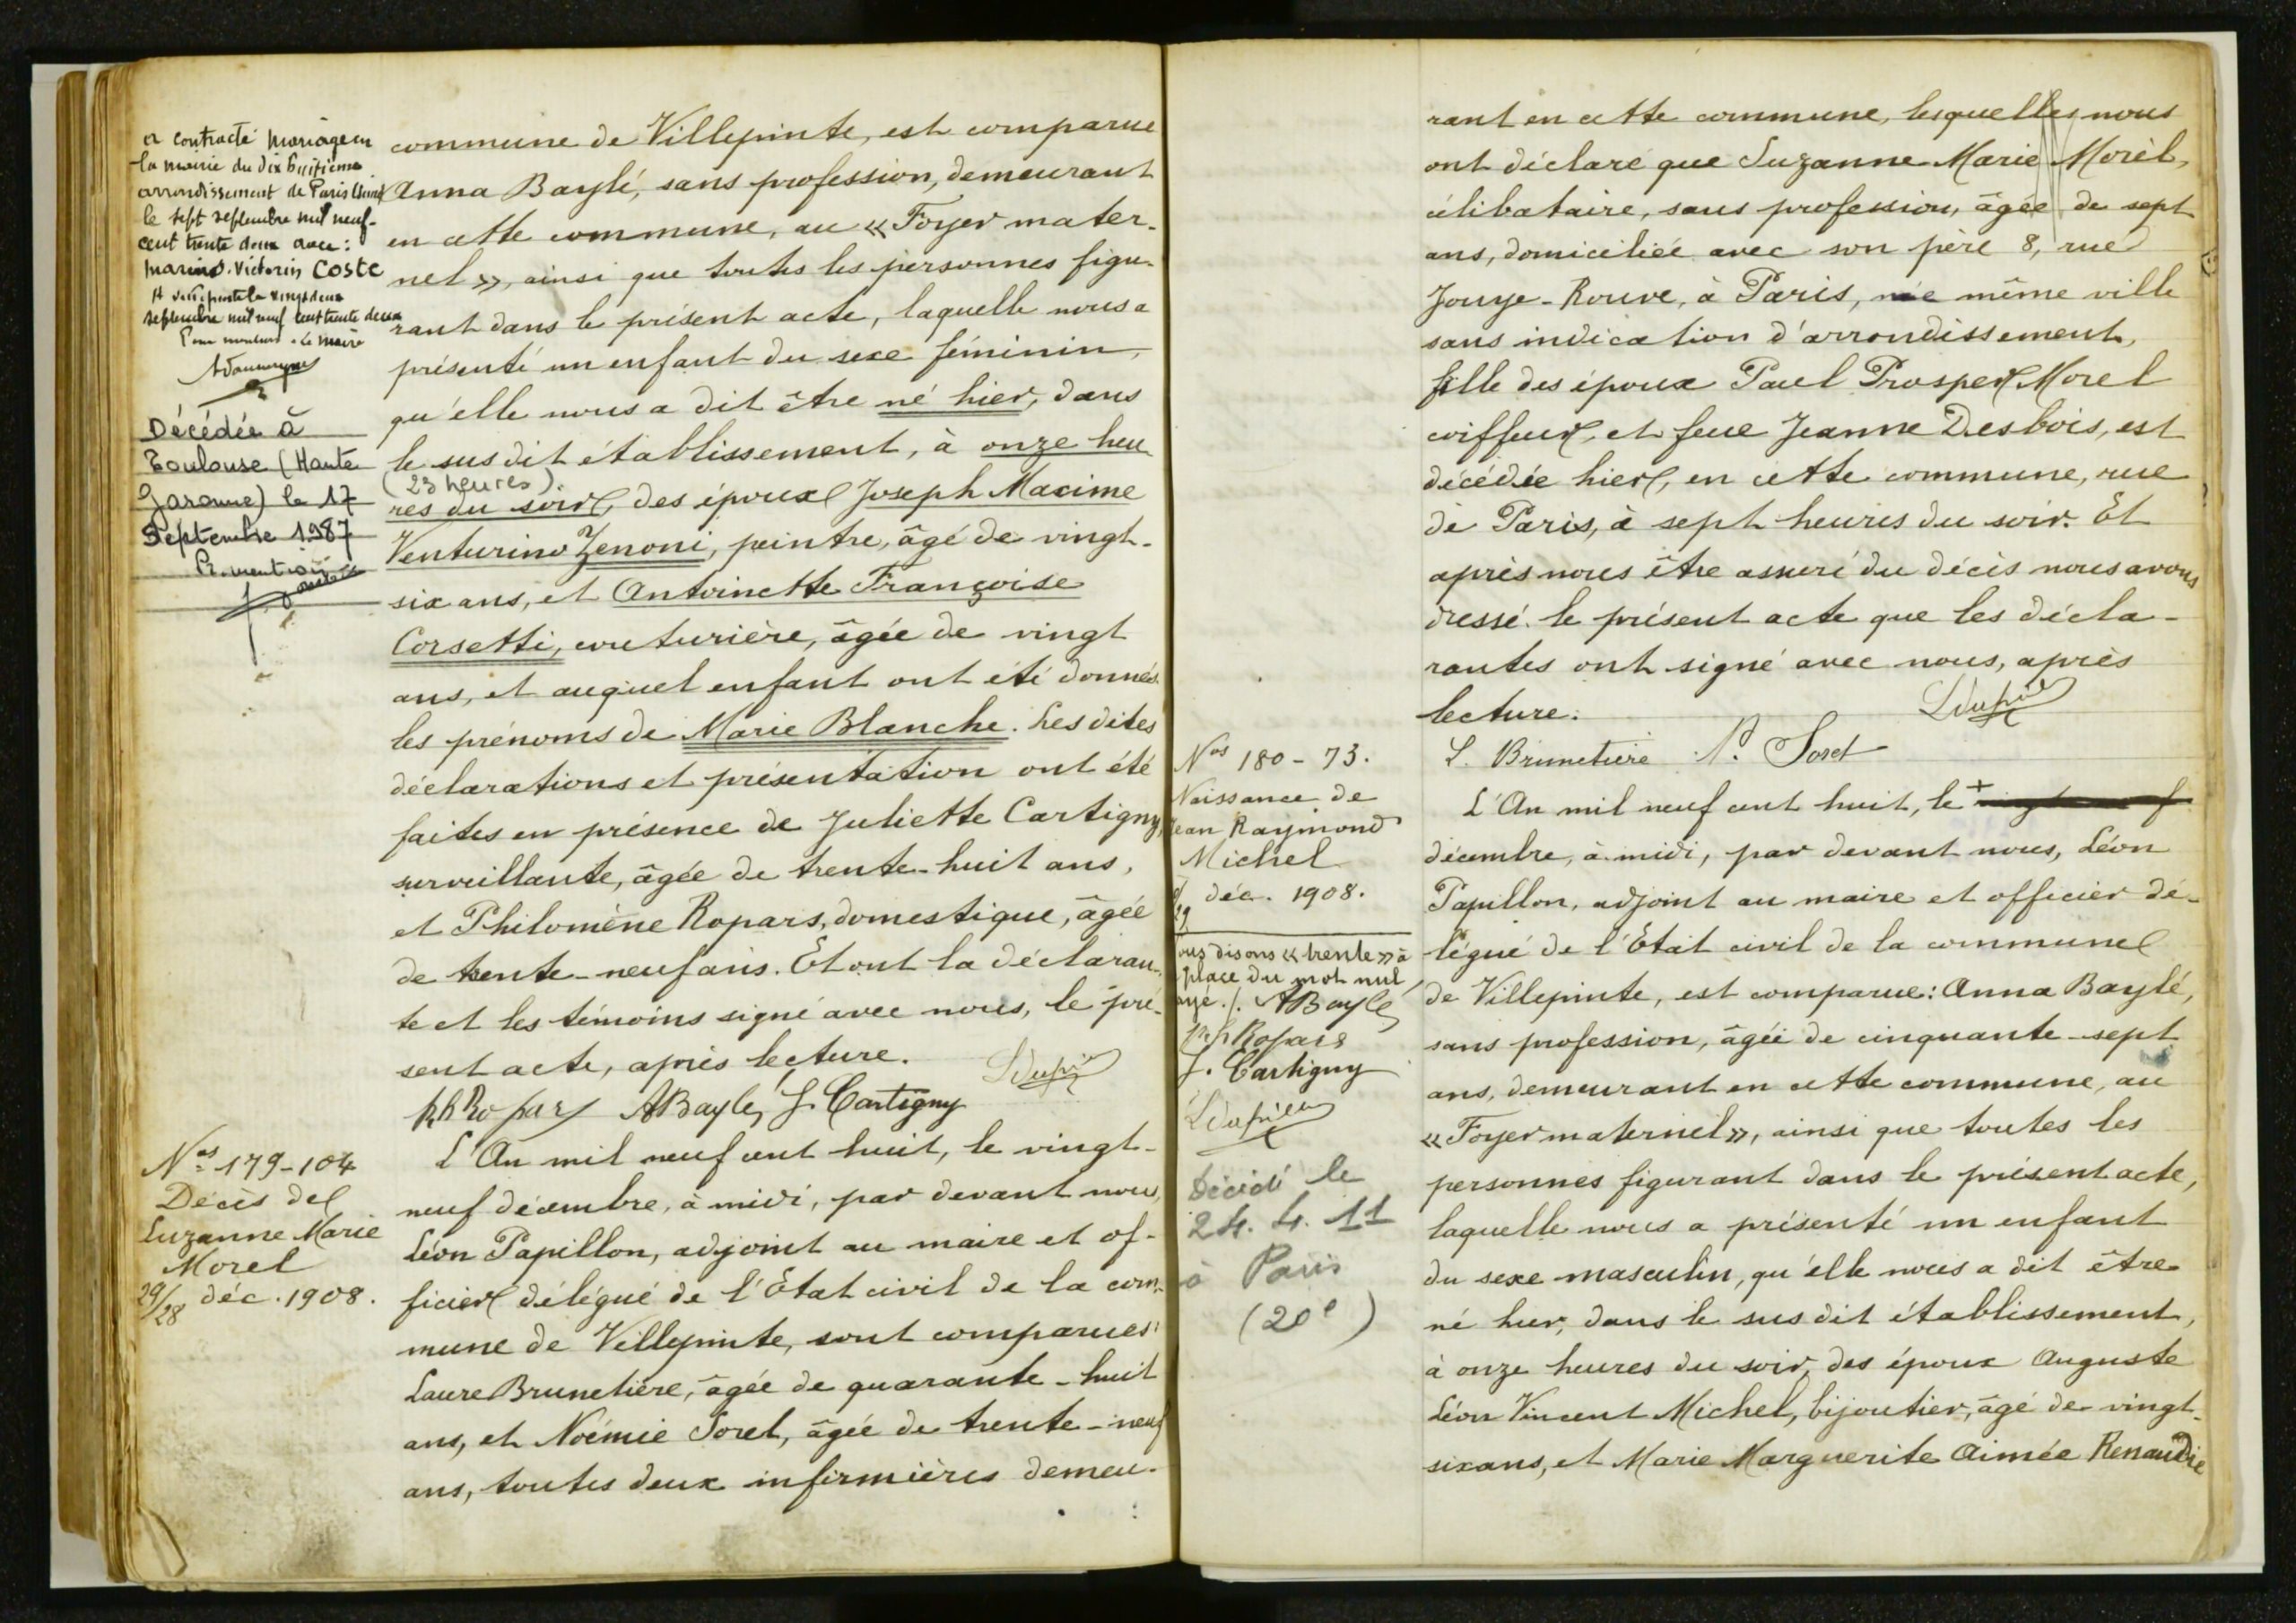 a contracté mariage en
la mairie du dix huitième
arrondissement de Paris
le sept septembre mil neuf-
cent trente deux avec:
Marius Victorin COSTE
A Villepinte le vingt deux
septembre mil neuf cent trente deux
Pour mention - Le Maire
Décédée à
Toulouse (Haute
Garonne) le 17
Septembre 1987
Pr mention
commune de Villepinte, est comparue
Anna Baylé, sans profession, demeurant
en cette commune, au « Foyer mater-
nel », ainsi que toutes les personnes figu-
rant dans le présent acte, laquelle nous a
présenté un enfant du sexe féminin,
qu'elle nous a dit être né hier, dans
le susdit établissement, à onze heu
(23 heures)
res du soir, des époux Joseph Maxime
Venturino Zenoni, peintre, âgé de vingt-
six ans, et Antoinette Françoise
Corsetti, couturière, âgée de vingt
ans, et auquel enfant ont été donnés
les prénoms de Marie Blanche. Les dites
déclarations et présentation ont été
faites en présence de Juliette Cartigny,
surveillante, âgée de trente-huit ans,
et Philomène Ropars, domestique, âgée
de trente-neuf ans. Et ont la déclaran-
te et les témoins signé avec nous, le pré-
sent acte, après lecture.
Ph Ropars ABaylé J. Cartigny
Nos 179-104
Décès de
Suzanne Marie
Morel
29/28 déc. 1908.
L'An mil neuf cent huit, le vingt-
neuf décembre, à midi, par devant nous,
Léon Papillon, adjoint au maire et of-
ficier délégué de l'Etat civil de la com-
mune de Villepinte, sont comparues:
Laure Brunetière, âgée de quarante-huit
ans, et Noémie Sorel, âgée de trente-neuf
ans, toutes deux infirmières demeu-
rant en cette commune, lesquelles nous
ont déclaré que Suzanne Marie Morel,
célibataire, sans profession, âgée de sept
ans, domiciliée avec son père 8, rue
Jouye-Rouve, à Paris, née même ville
sans indication d'arrondissement,
fille des époux Paul Prosper Morel
coiffeur, et feue Jeanne Desbois, est
décédée hier, en cette commune, rue
de Paris, à sept heures du soir. Et
après nous être assuré du décès nous avons
dressé le présent acte que les décla-
rantes ont signé avec nous, après
lecture.
L. Brunetière N. Sorel
Nos 180-73.
Naissance de
Jean Raymond
Michel
déc. 1908.
29
ous disons « trente » à
place du mot nul
ayé ./. ABaylé
Ph Ropars
J. Cartigny
Décédé le
24. 4. 11
à Paris
(20e)
L'An mil neuf cent huit, le + vingt-neuf
décembre, à midi, par devant nous, Léon
Papillon, adjoint au maire et officier dé-
légué de l'Etat civil de la commune
de Villepinte, est comparue: Anna Baylé,
sans profession, âgée de cinquante-sept
ans, demeurant en cette commune, au
« Foyer maternel », ainsi que toutes les
personnes figurant dans le présent acte,
laquelle nous a présenté un enfant
du sexe masculin, qu'elle nous a dit être
né hier, dans le susdit établissement,
à onze heures du soir, des époux Auguste
Léon Vincent Michel, bijoutier, âgé de vingt-
six ans, et Marie Marguerite Aimée Renaudie